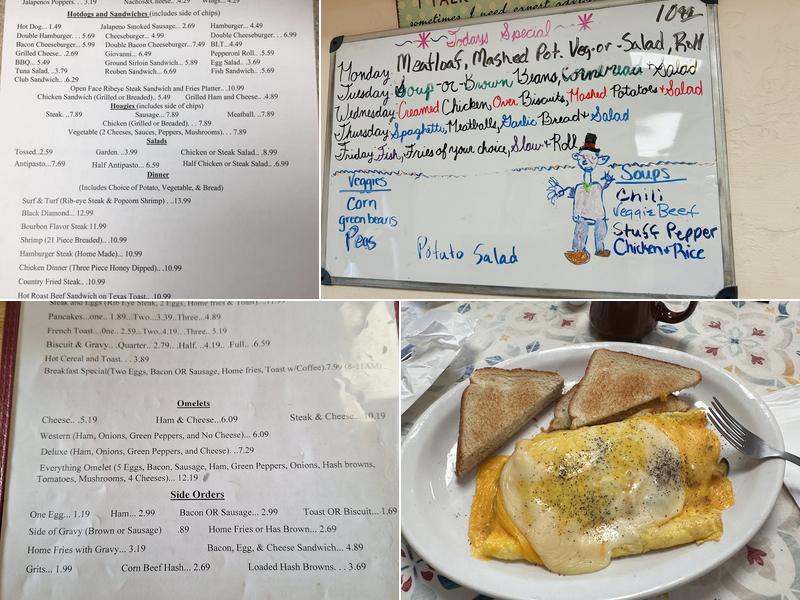 Jalapenos Poppers... 3.19 Nachos&Cheese.. 4.29 Wings... 4.29
Hotdogs and Sandwiches (includes side of chips)
Hot Dog... 1.49 Jalapeno Smoked Sausage... 2.69 Hamburger... 4.49
Double Hamburger. . . 5.69 Cheeseburger... 4.99 Double Cheeseburger. . . 6.99
Bacon Cheeseburger... 5.99 Double Bacon Cheeseburger...7.49 BLT...4.49
Grilled Cheese. ..2.69 Giovanni... 6.49 Pepperoni Roll...5.59
BBQ... 5.49 Ground Sirloin Sandwich... 5.89 Egg Salad...3.69
Tuna Salad. ..3.79 Reuben Sandwich... 6.69 Fish Sandwich...5.69
Club Sandwich...6.29
Open Face Ribeye Steak Sandwich and Fries Platter.. .10.99
Chicken Sandwich (Grilled or Breaded).. 5.49 Grilled Ham and Cheese...4.89
Hoagies (includes side of chips)
Steak. ..7.89 Sausage... 7.89 Meatball. ..7.89
Chicken (Grilled or Breaded). . . 7.89
Vegetable (2 Cheeses, Sauces, Peppers, Mushrooms). . . 7.89
Salads
Tossed..2.59 Garden. ..3.99 Chicken or Steak Salad. ..8.99
Antipasto...7.69 Half Antipasto... 6.59 Half Chicken or Steak Salad. ..6.99
Dinner
(Includes Choice of Potato, Vegetable, & Bread)
Surf & Turf (Rib-eye Steak & Popcorn Shrimp) . ..13.99
Black Diamond... 12.99
Bourbon Flavor Steak 11.99
Shrimp (21 Piece Breaded). ..10.99
Hamburger Steak (Home Made)... 10.99
Chicken Dinner (Three Piece Honey Dipped)... 10.99
Country Fried Steak. ..10.99
Hot Roast Beef Sandwich on Texas Toast. ..10.99
sometimes I need expert advice
Todays Special
Monday Meatloaf, Mashed Pot. Veg-or-Salad, Roll
Tuesday Soup-or-Brown Beans, Cornbread + Salad
Wednesday Creamed Chicken, Over Biscuits, Mashed Potatoes + Salad
Thursday Spaghetti, Meatballs, Garlic Bread + Salad
Friday Fish, Fries of your choice, Slaw + Roll
Veggies
Corn
green beans
Peas
Potato Salad
Soups
Chili
Veggie Beef
Stuff Pepper
Chicken + Rice
Steak and Eggs (Rib Eye Steak, 2 Eggs, Home fries & Toast)...11.99
Pancakes...one.. 1.89...Two...3.39..Three...4.89
French Toast. ..0ne.. 2.59...Two..4.19.. .Three.. 5.19
Biscuit & Gravy.. .Quarter.. 2.79. ..Half. ..4.19.. .Full.. .6.59
Hot Cereal and Toast. . . 3.89
Breakfast Special(Two Eggs, Bacon OR Sausage, Home fries, Toast w/Coffee).7.99 (8-11AM)
Omelets
Cheese.. ..5.19 Ham & Cheese...6.09 Steak & Cheese....10.19
Western (Ham, Onions, Green Peppers, and No Cheese)... 6.09
Deluxe (Ham, Onions, Green Peppers, and Cheese). ..7.29
Everything Omelet (5 Eggs, Bacon, Sausage, Ham, Green Peppers, Onions, Hash browns,
Tomatoes, Mushrooms, 4 Cheeses)... 12.19
Side Orders
One Egg... 1.19 Ham... 2.99 Bacon OR Sausage... 2.99 Toast OR Biscuit... 1.69
Side of Gravy (Brown or Sausage) .89 Home Fries or Has Brown... 2.69
Home Fries with Gravy... 3.19 Bacon, Egg, & Cheese Sandwich... 4.89
Grits... 1.99 Corn Beef Hash... 2.69 Loaded Hash Browns. . . 3.69